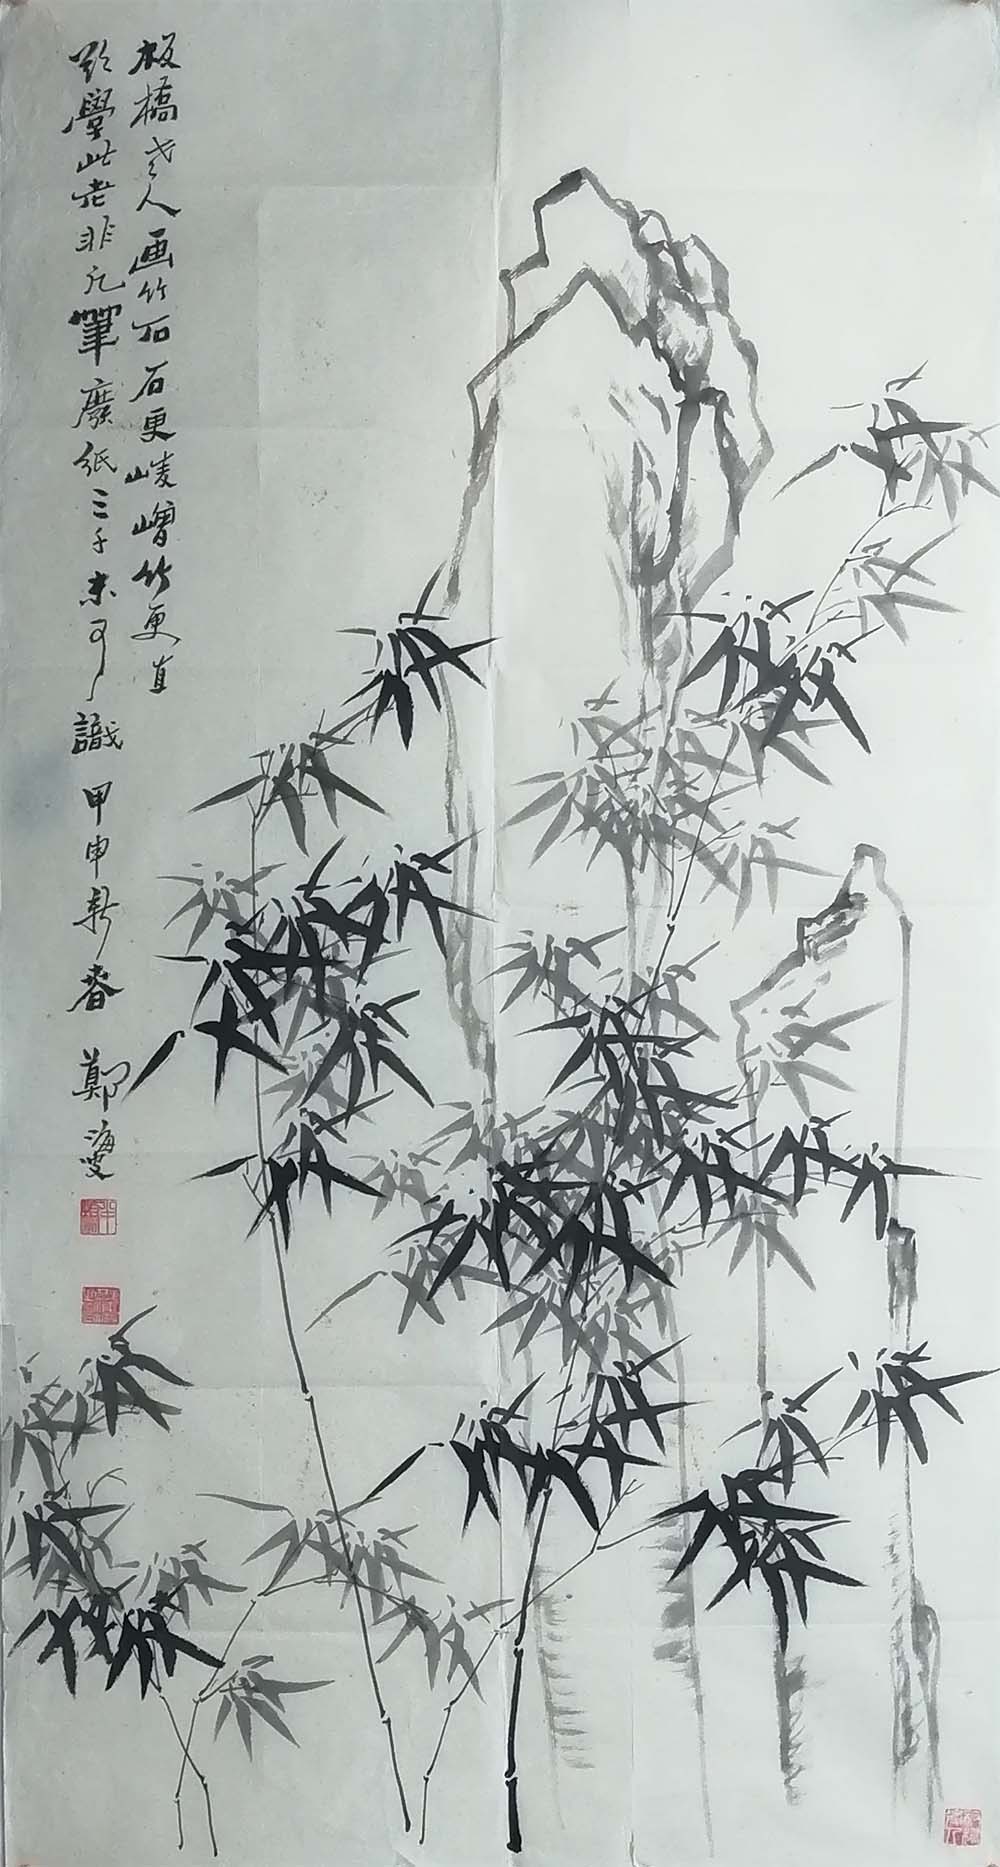 板橋老人画竹石石更崚嶒竹更直
欲學此老非凡筆廢紙三千未可識甲申新春 鄭海